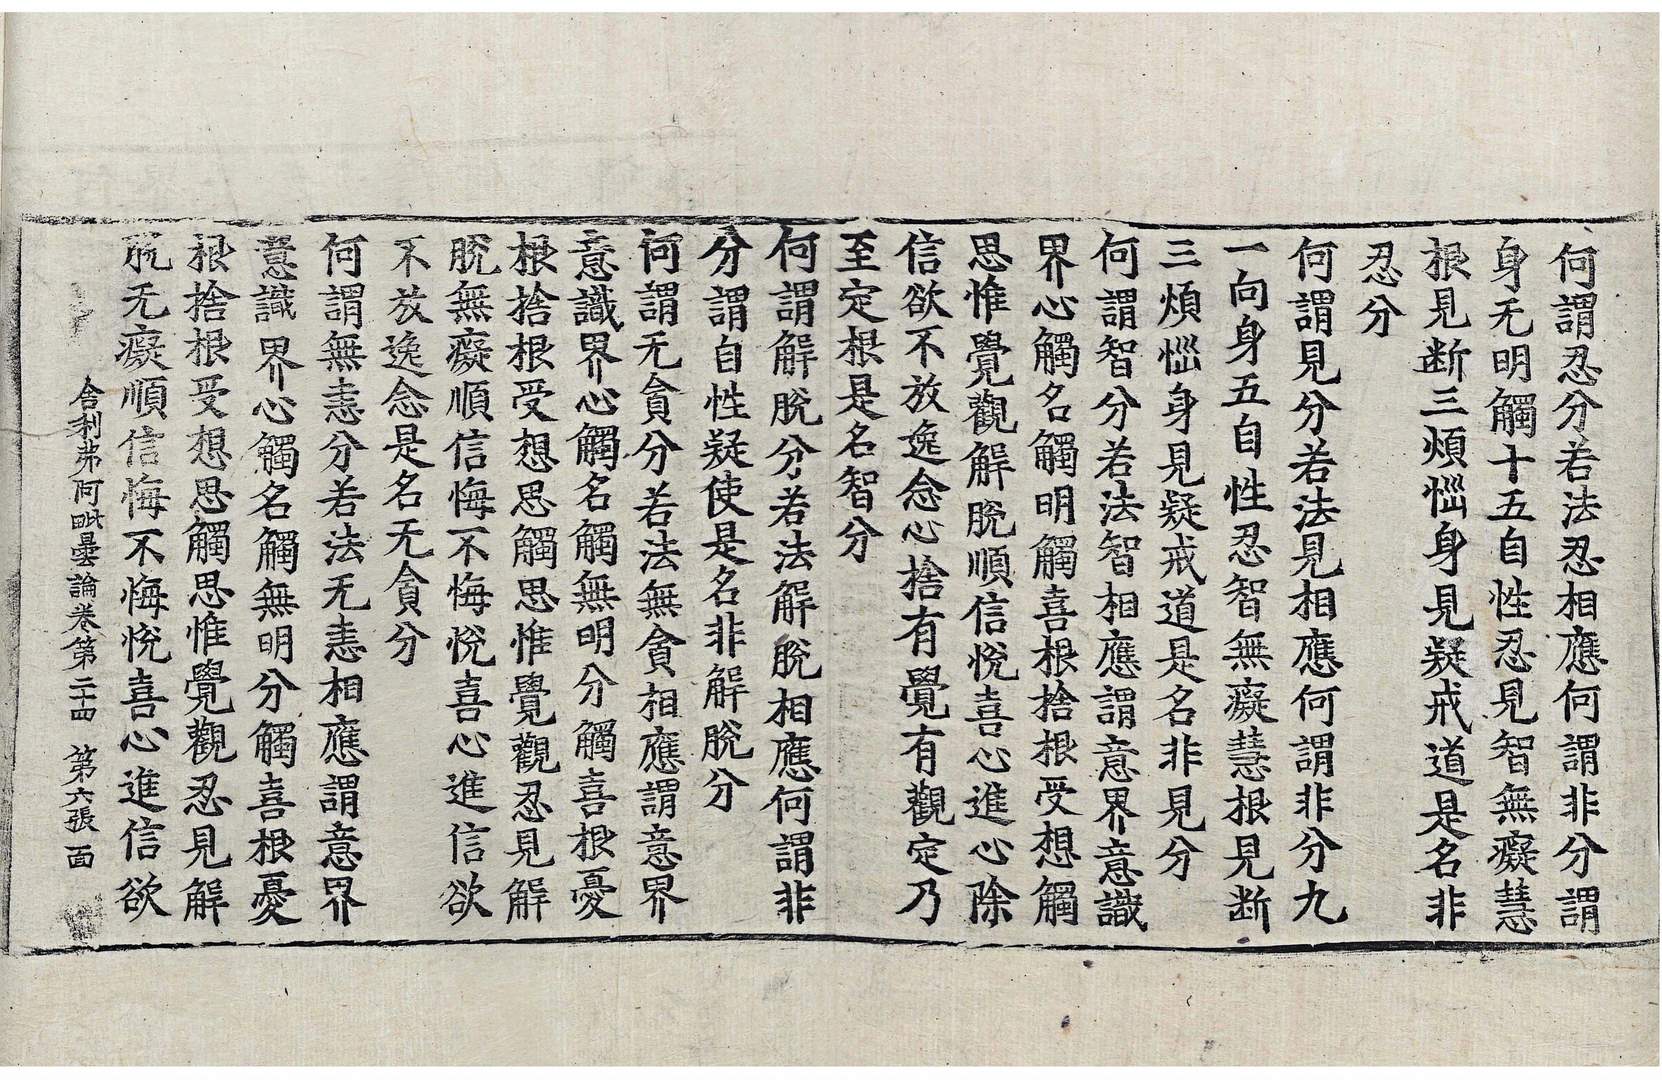 何謂忍分若法忍相應何謂非分謂
身无明觸十五自性忍見智無癡慧
根見断三煩惱身見疑戒道是名非
忍分
何謂見分若法見相應何謂非分九
一向身五自性忍智無癡慧根見断
三煩惱身見疑戒道是名非見分
何謂智分若法智相應謂意界意識
界心觸名觸明觸喜根捨根受想觸
思惟覺觀解脫順信悅喜心進心除
信欲不放逸念心捨有覺有觀定乃
至定根是名智分
何謂解脫分若法解脫相應何謂非
分謂自性疑使是名非解脫分
何謂无貪分若法無貪相應謂意界
意識界心觸名觸無明分觸喜根憂
根捨根受想思觸思惟覺觀忍見解
脫無癡順信悔不悔悅喜心進信欲
不放逸念是名无貪分
何謂無恚分若法无恚相應謂意界
意識界心觸名觸無明分觸喜根憂
根捨根受想思觸思惟覺觀忍見解
脫无癡順信悔不悔悅喜心進信欲
舍利弗阿毗曇論卷第二十四 第六張 面